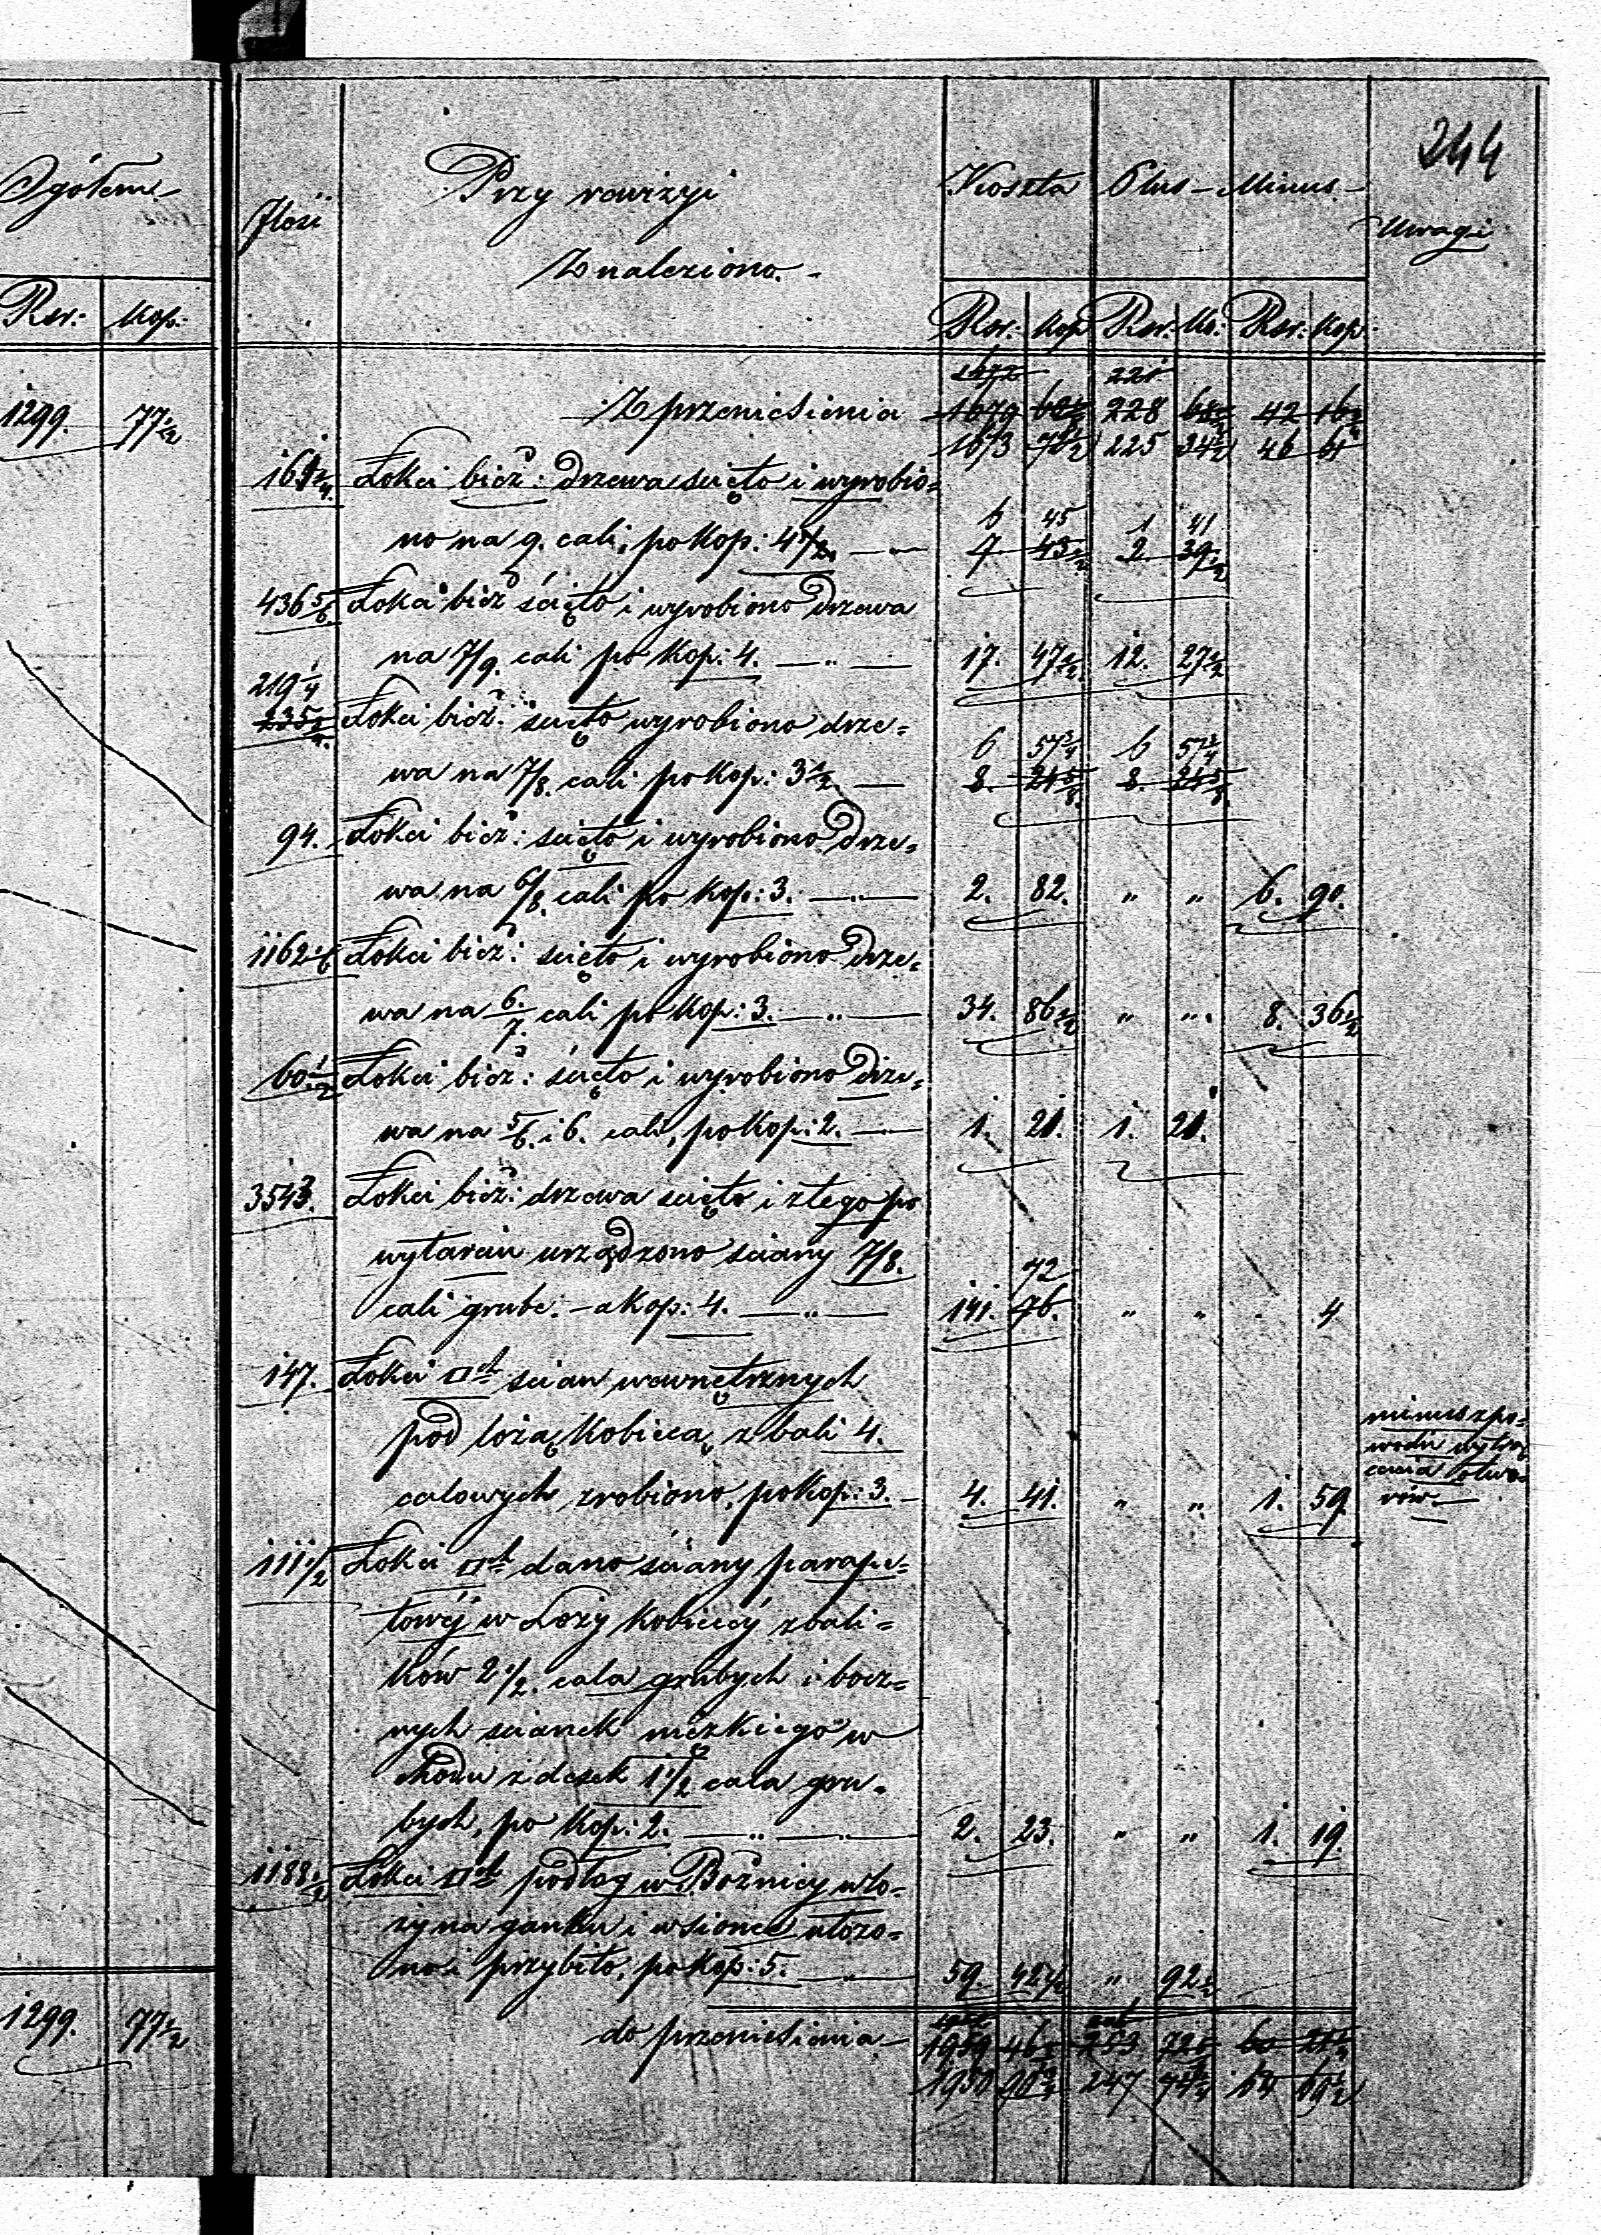 244
Ogółem
Rsr: Kop:
1299. 77 1/2
1299. 77 1/2
Ilość
Przy rewizyi
Znaleziono.
Koszta Plus Minus
Uwagi
Rsr: Kop Rsr: Ko: Rsr: Kop
Z przeniesienia 1679 228 42
1673 225 34 1/2 46
Łokci bież: drzewa ścięto i wyrobio=
6 45 1 41
no na 9. cali, po Kop: 4 1/2. 7 43 1/2 2 39 1/2
436 5/6. Łokci bież ścięto i wyrobiono drzewa
na 7/9. cali po Kop: 4. 17. 47 1/2 12. 27 1/2
219 1/4
235 Łokci bież: ścięto wyrobiono drze=
6 57 3/4 6 57 3/4
wa na 7/8. cali po Kop: 3 1/2. 8. 24 5/8. 8. 24 5/8.
94. Łokci bież: ścięto i wyrobiono drze=
wa na 6/8. cali po Kop: 3. 2. 82. " " 6. 90.
1162 1/6 Łokci bież: ścięto i wyrobiono drze=
wa na 6./7. cali po Kop: 3. 34. 86 1/2 " " 8. 36 1/2
60 1/2 Łokci bież: ścięto i wyrobiono drze=
wa na 5/6. i 6. cali, po Kop: 2. 1. 21. 1. 21.
3543. Łokci bież: drzewa ścięto i z tego po
wytarciu urządzono ściany 7/8.
72
cali grube. - a Kop: 4. 141. 76. " " 4
147. Łokci □ch ścian wewnętrznych
pod lożą Kobiecą z bali 4.
calowych zrobiono, po Kop: 3. 4. 41. " " 1. 59.
minus z po=
wodu wytrą
cenia otwo=
rów.
111 1/2 Łokci □ch dano ściany parape=
towéj w Loży Kobiecéj z bali=
ków 2 1/2. cala grubych i bocz=
nych ścianek męzkiego w
chodu z desek 1 1/2 cala gru=
bych, po Kop: 2. 2. 23. " " 1. 19.
1188 1/2 Łokci □ch podłóg w Bożnicy w lo=
ży na ganku i w sionce ułożo=
no i przybito, po Kop: 5. 59. 42 1/2 " 92 1/2
do przeniesienia 1959 253 60
1950 90 3/4 247 74 3/4 64